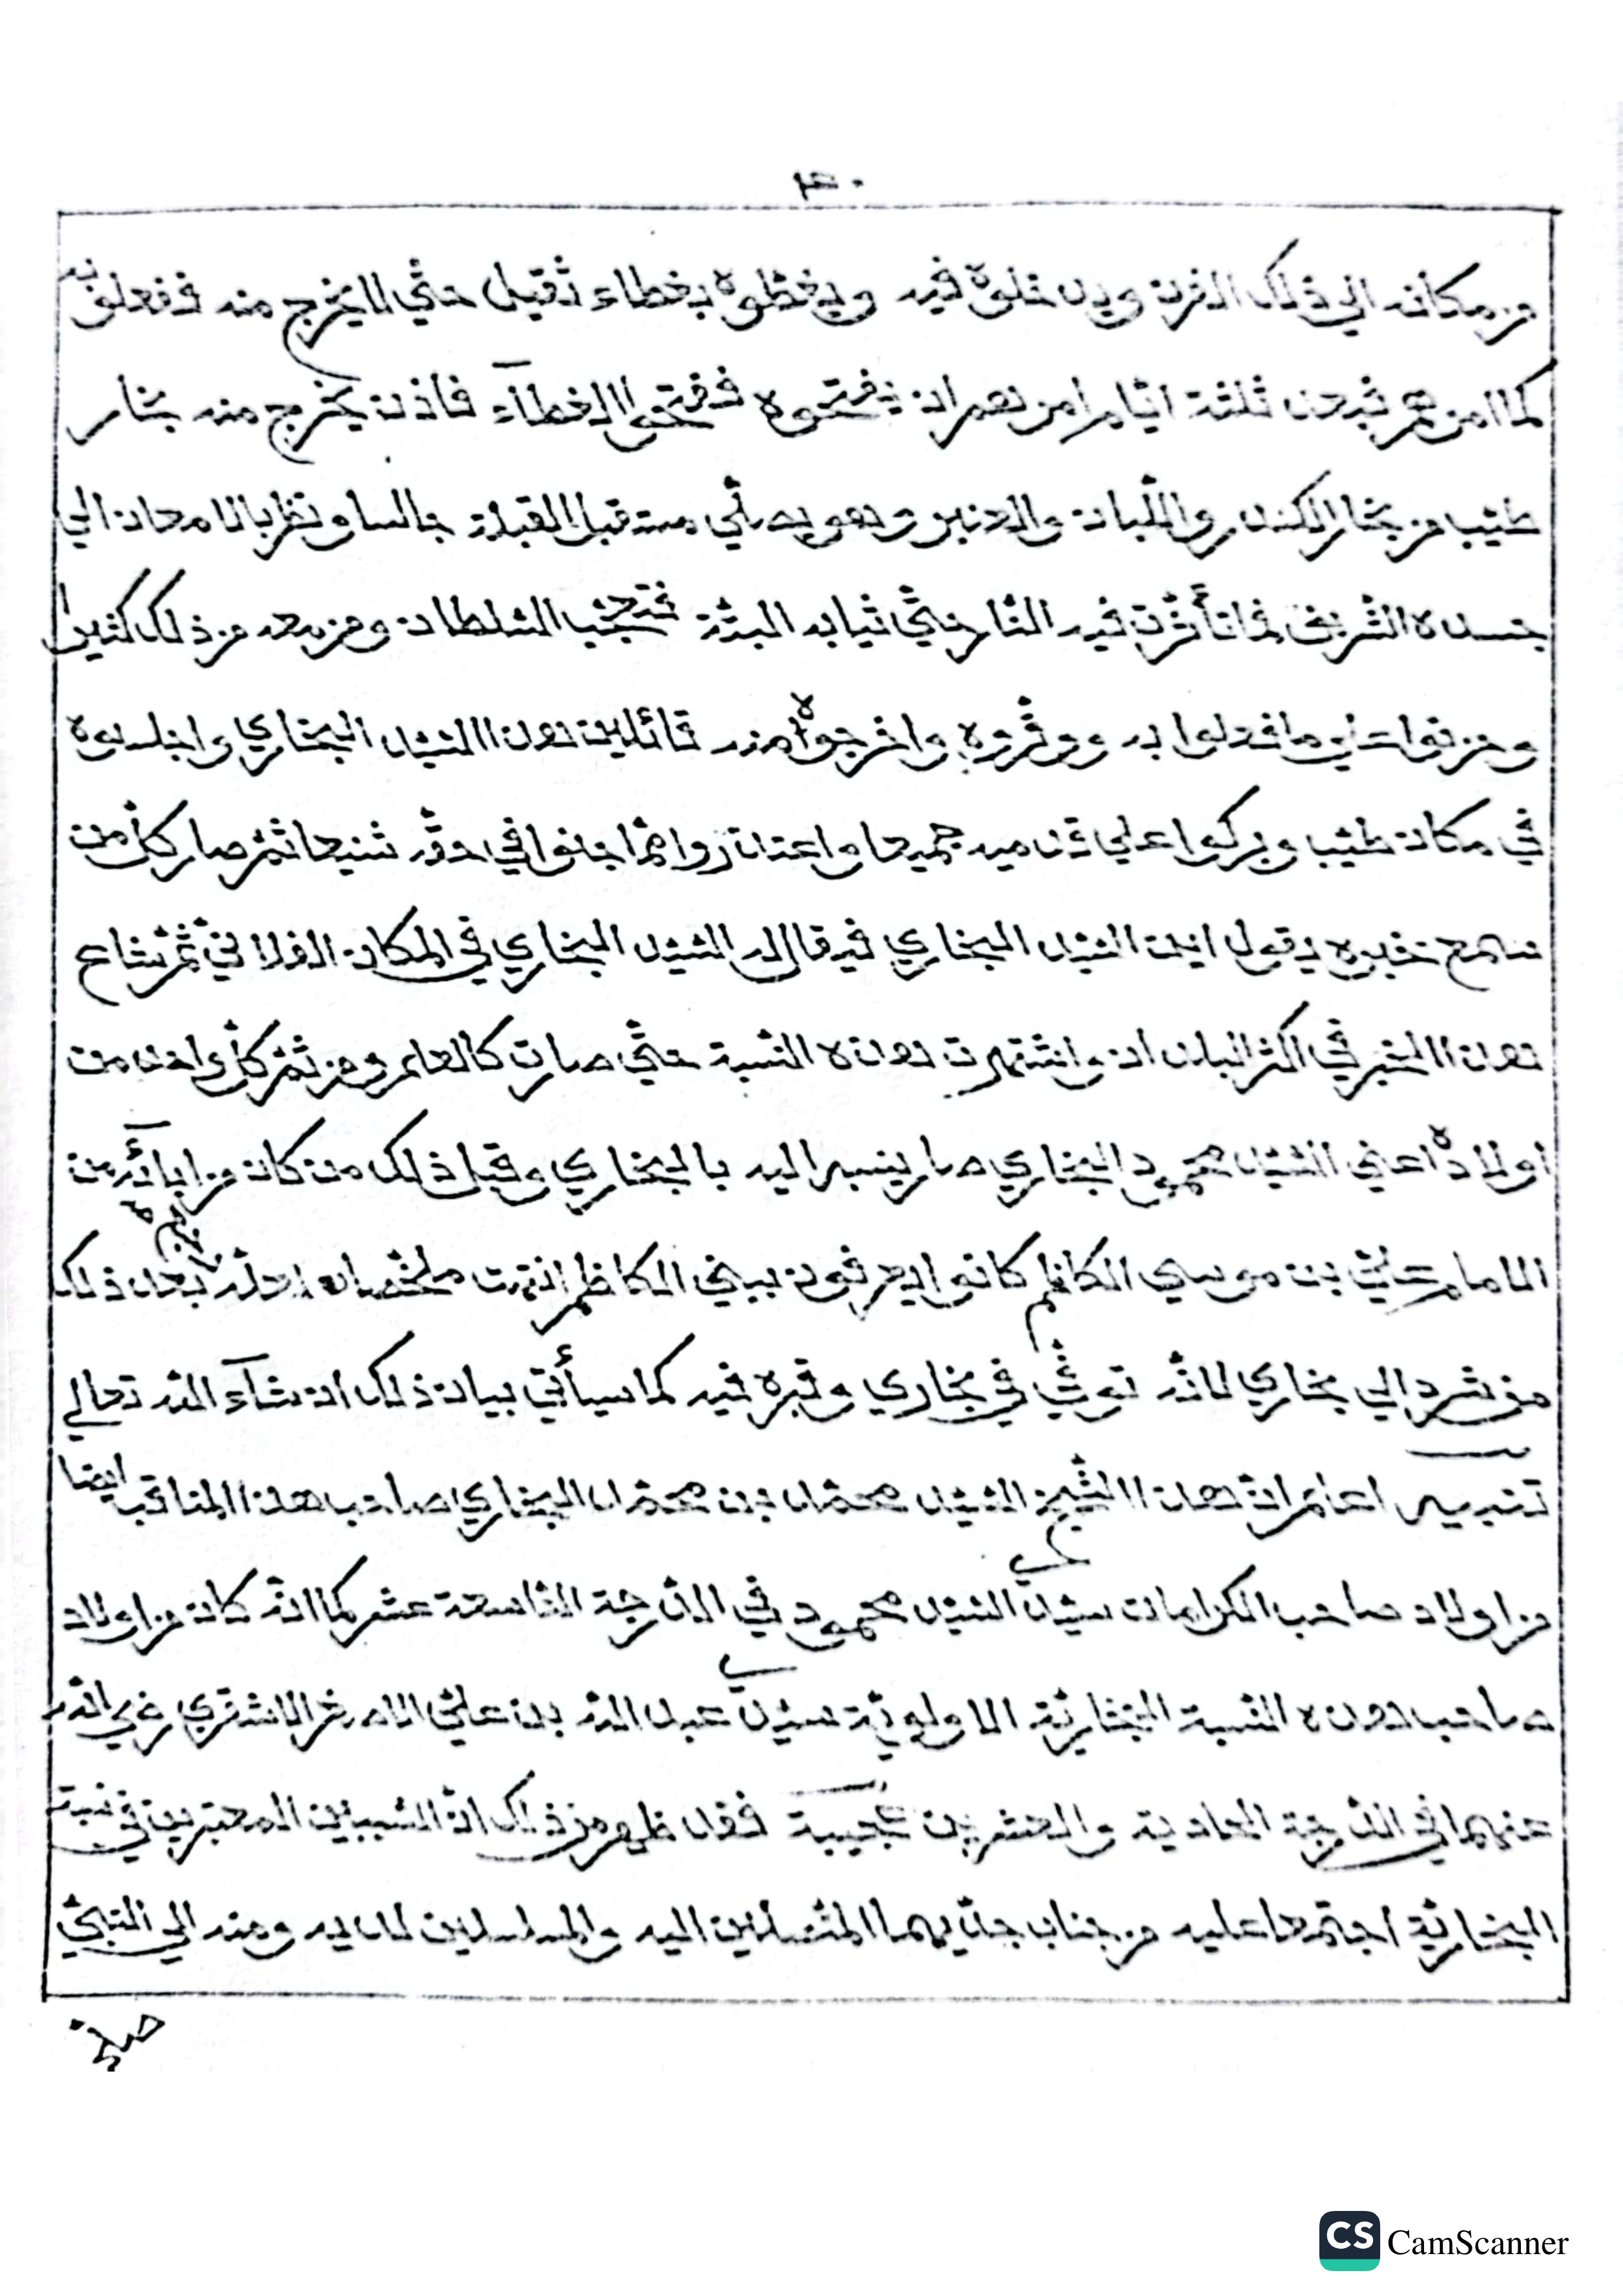 ٣٠
من مكانه الي ذلك الفرن ويدخلوه فيه ويغطوه بغطاء ثقيل حتي لا يخرج منه ففعلو به
كما امرهم ثم بعد ثلثة ايّام امرهم ان يفتحوه ففتحوا الغطآء فاذن يخرج منه بخار
طيّب من بخار الكندر واللّبان والعنبر وهو يصلّي مستقبل القبلة جالسا ونظر بالامعان الي
جسده الشّريف فما تأثّرت فيه النّار حتّي ثيابه البتّة فتعجّب السّلطان ومن معه من ذلك كثيرا
وحزنوا علي ما فعلوا به ووقّروه واخرجوه منه قائلين هذا السّيّد البخاري واجلسوه
في مكان طيّب وبركوا علي قدميه جميعا واعتذروا ممّا جنوا في حقّه شنيعا ثمّ صار كلّ من
سامع خبره يقول اين السّيّد البخاري فيقال له السّيّد البخاري في المكان الفلاني ثمّ شاع
هذا الخبر في اكثر البلدان واشتهرت هذه النّسبة حتّي صارت كالعلم ومن ثمّ كلّ واحد من
اولاده اعني السّيّد محمود البخاري صار ينسب اليه بالبخاري وقبل ذلك من كان من ابائه من
الامام عليّ بن موسي الكاظم كانوا يعرفون ببني الكاظم انتهت ملخّصا لعلّه بعد ذلك
من شرد الي بخاري لانّه توفّي في بخاري وقبره فيه كما سيأتي بيان ذلك ان شآء اللّه تعالي
تنبيه اعلم انّ هذا الشّيخ السّيّد محمّد بن محمّد البخاري صاحب هذا المناقب ايضا
من اولاد صاحب الكرامات سيّدي السّيّد محمود في الدّرجة التّاسعة عشر كما انّه كان من اولاد
صاحب هذه النّسبة البخاريّة الاولويّة سيّدي عبد اللّه بن عليّ الاصغر الاشقري رضي اللّه
عنهما في الدّرجة الحادية والعشرين عجيبة فقد ظهر من ذلك انّ السّببين المعتبرين في نسبة
البخاريّة اجتمعا عليه من جناب جدّيهما المتّصلين اليه والمسلسلين لديه ومنه الي النّبيّ
CS CamScanner